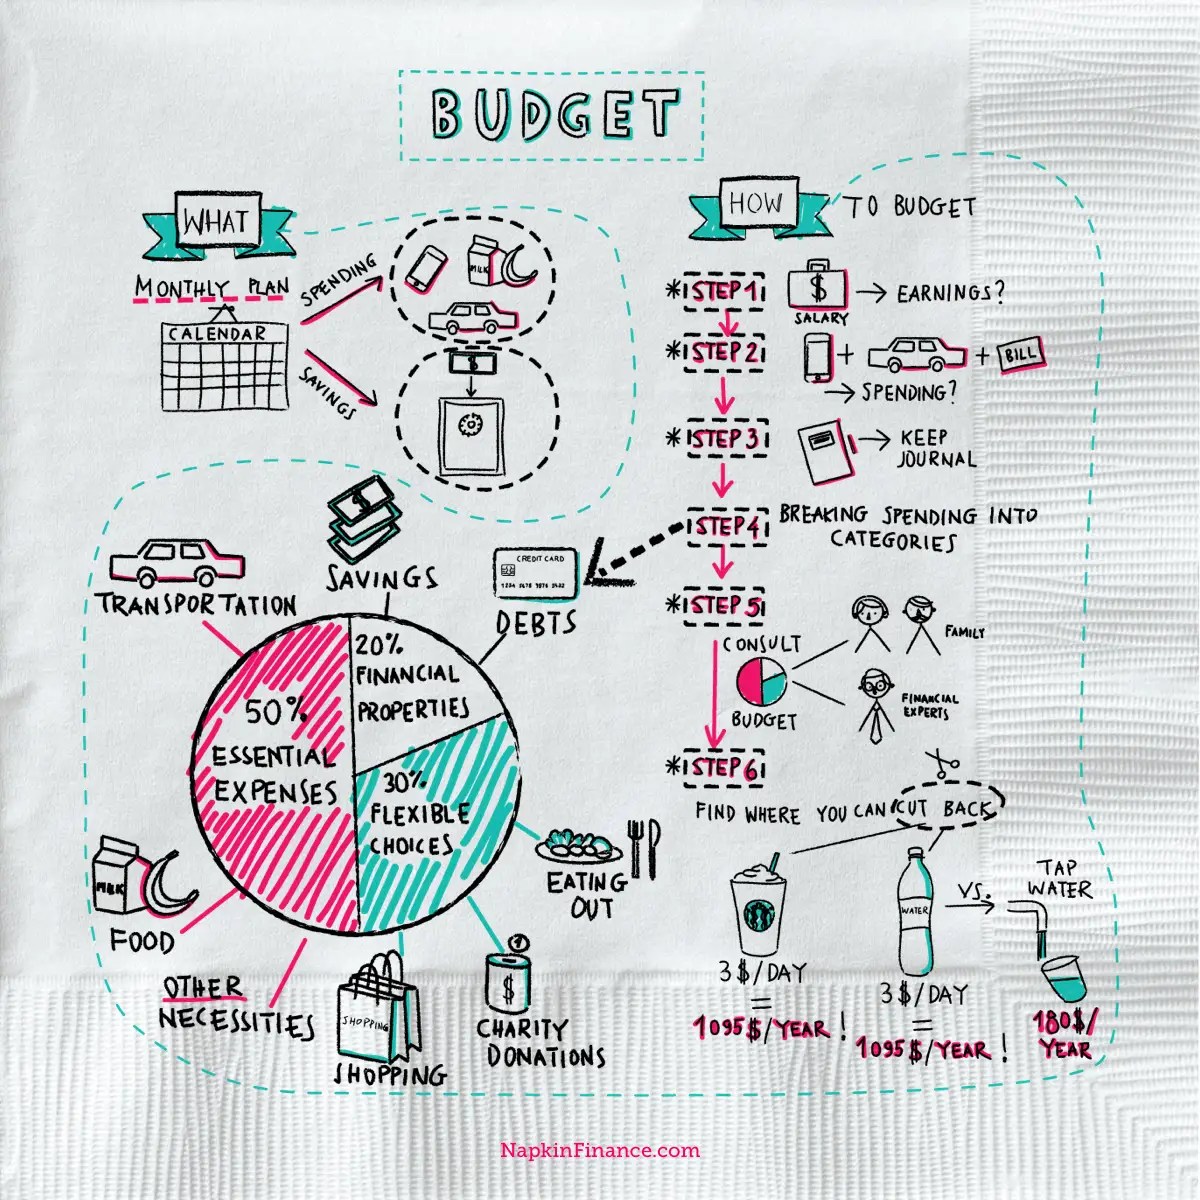 BUDGET
WHAT
MONTHLY PLAN
CALENDAR
SPENDING
SAVINGS
MILK
$
HOW TO BUDGET
*STEP 1
$
SALARY
EARNINGS?
*STEP 2
+ + BILL
SPENDING?
*STEP 3
KEEP
JOURNAL
*STEP 4
BREAKING SPENDING INTO
CATEGORIES
*STEP 5
CONSULT
BUDGET
FAMILY
FINANCIAL
EXPERTS
*STEP 6
FIND WHERE YOU CAN CUT BACK
3$/DAY
=
1095$/YEAR!
WATER
3$/DAY
=
1095$/YEAR!
VS.
TAP
WATER
180$/
YEAR
$
SAVINGS
TRANSPORTATION
CREDIT CARD
DEBTS
20%
FINANCIAL
PROPERTIES
50%
ESSENTIAL
EXPENSES
30%
FLEXIBLE
CHOICES
MILK
FOOD
OTHER
NECESSITIES
SHOPPING
SHOPPING
$
CHARITY
DONATIONS
EATING
OUT
NapkinFinance.com